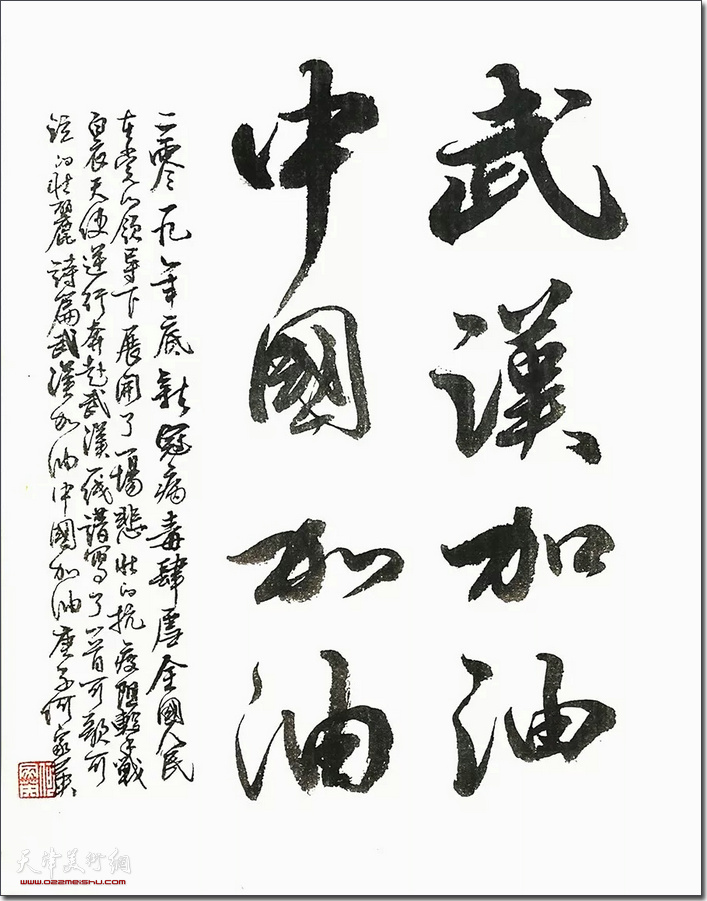 武漢加油
中國加油
二零一九年底新冠病毒肆虐全國人民
在党的领导下展開了一場悲壯的抗疫阻擊战
白衣天使逆行奔赴武漢一线譜寫了一首可歌可
泣的壯麗詩篇武漢加油中國加油庚子何家英
天津美术網
www.022meishu.com